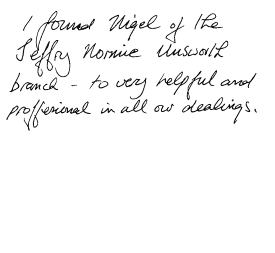 I found Nigel of the
Jeffry Normie Unsworth
branch - to very helpful and
proffesional in all our dealings.